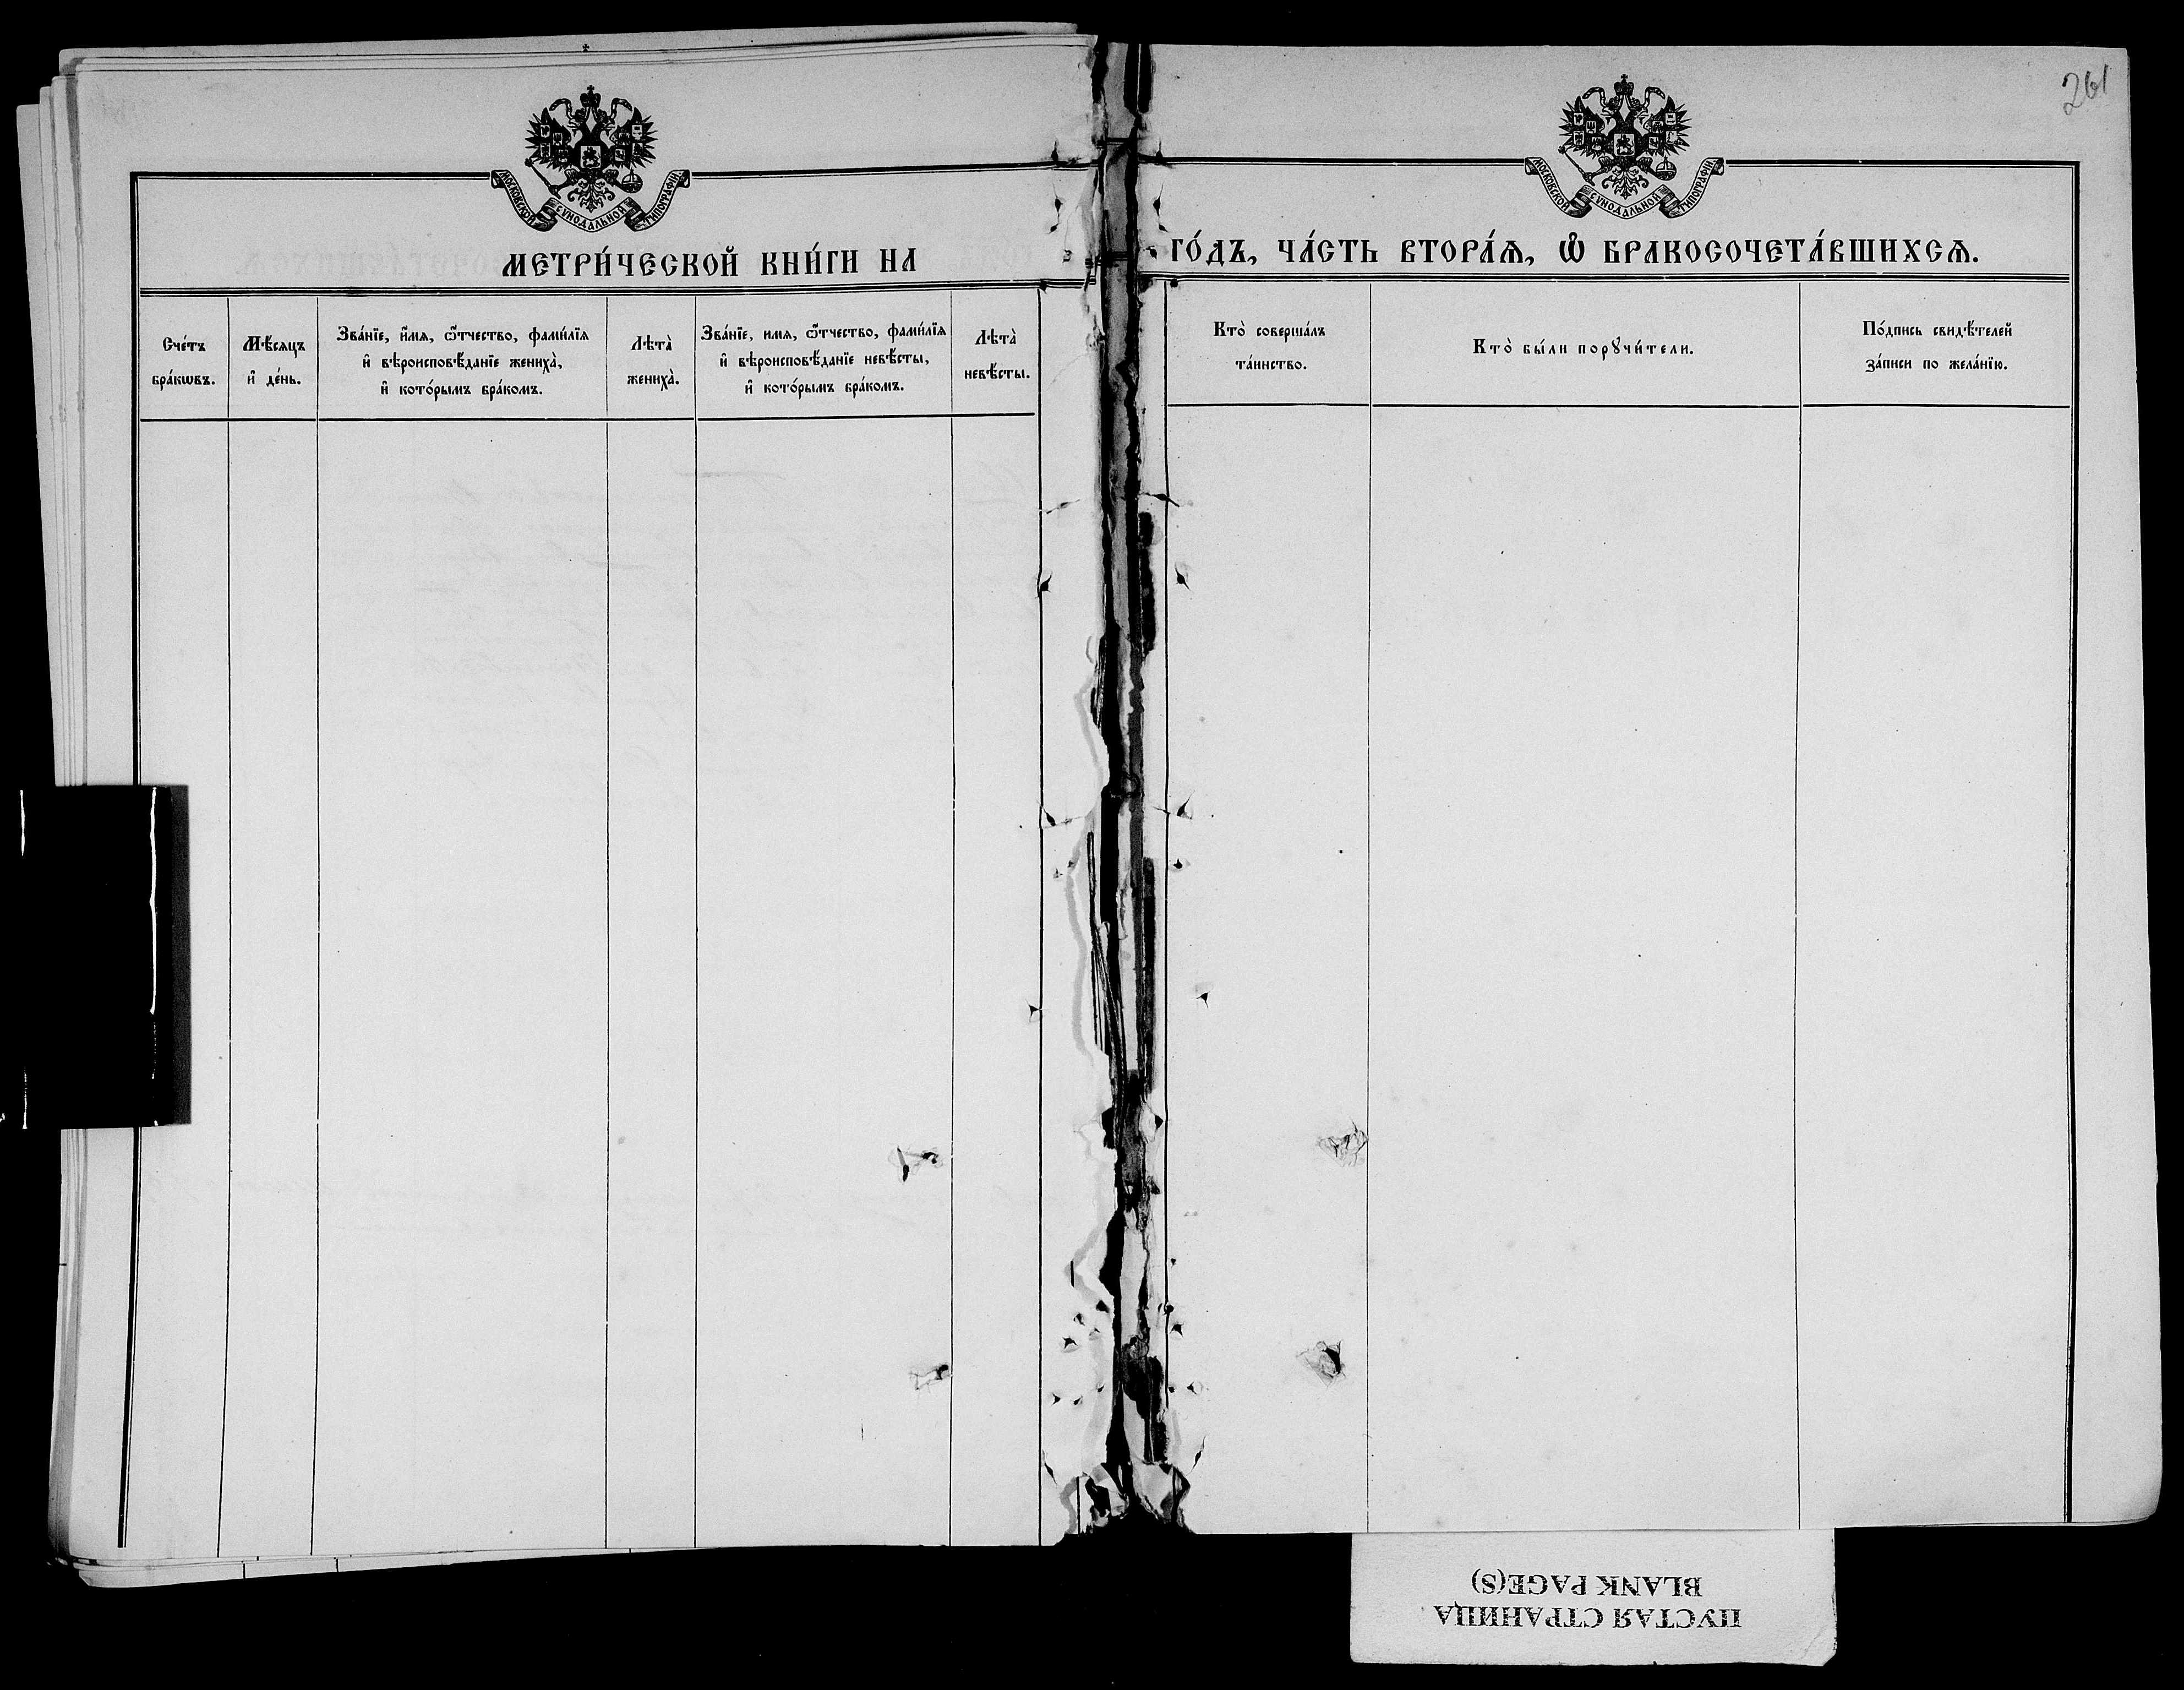 261
МОСКОВСКОЙ СѴНОДАЛЬНОЙ ТИПОГРАФІИ
МОСКОВСКОЙ СѴНОДАЛЬНОЙ ТИПОГРАФІИ
МЕТРИ́ЧЕСКОЙ КНИ́ГИ НА
ГО́ДЪ, ЧА́СТЬ ВТОРА́Ѧ, Ѽ БРАКОСОЧЕТА́ВШИХСѦ.
Сче́тъ
бра́кѡвъ.
Мѣ́сѧцъ
и҆ де́нь.
Зва́нїе, и҆́мѧ, ѻ҆́тчество, фами́лїѧ
и҆ вѣроисповѣ́данїе жениха̀,
и҆ кото́рымъ бра́комъ.
Лѣта̀
жениха̀.
Зва́нїе, имѧ, ѻ҆́тчество, фами́лїѧ
и҆ вѣроисповѣ́данїе невѣ́сты,
и҆ кото́рымъ бра́комъ.
Лѣта̀
невѣ́сты.
Кто̀ соверша́лъ
та́инство.
Кто̀ бы́ли порꙋчи́тели.
По́дпись свидѣ́телей
за́писи по жела́нїю.
ПУСТАЯ СТРАНИЦА
BLANK PAGE(S)